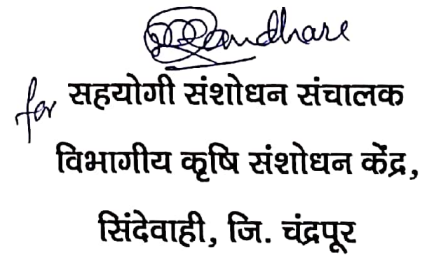 for सहयोगी संशोधन संचालक
विभागीय कृषि संशोधन केंद्र,
सिंदेवाही, जि. चंद्रपूर